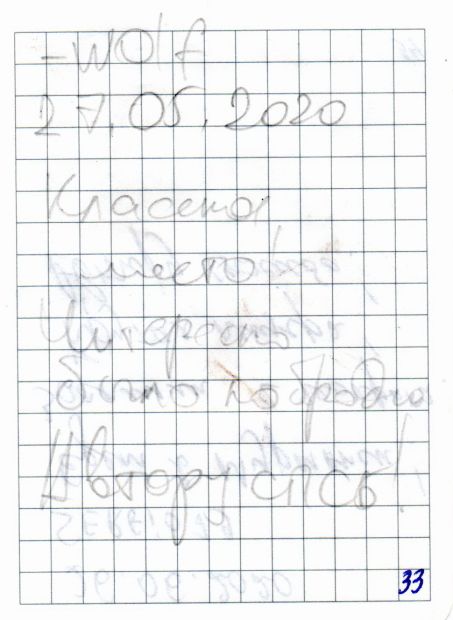 -wolf
27.05.2020
Класное
место!
Интересно
было побродить
Автору СПСЬ!
33